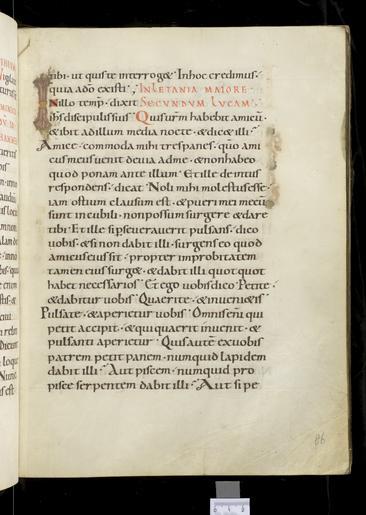 tibi· ut quis te interroget· In hoc credimus·
quia a do existi· IN LETANIA MAIORE·
IN illo temp̄· dixit SECUNDUM LUCAM·
ihs discipulis suis· Quis ur̄m habebit amicū·
& ibit ad illum media nocte· & dicet illi·
Amice· commoda mihi tres panes· qm̄ ami
cus meus uenit de uia ad me· & non habeo
quod ponam ante illum· Et ille de intus
respondens· dicat· Noli mihi molestus esse·
iam ostium clausum est· & pueri mei mecū
sunt in cubili· non possum surgere & dare
tibi· Et ille si p̱seuerauerit pulsans· dico
uobis· & si non dabit illi· surgens eo quod
amicus eius sit· propter improbitatem
tamen eius surget· & dabit illi quot quot
habet necessarios· Et ego uobis dico· Petite·
& dabitur uobis· Quaerite· & inuenietis·
Pulsate· & aperietur uobis· Omnis enī qui
petit accipit· & qui quaerit inuenit· &
pulsanti aperietur· Quis autē ex uobis
patrem petit panem· numquid lapidem
dabit illi· Aut piscem· numquid pro
pisce serpentem dabit illi· Aut si pe
86